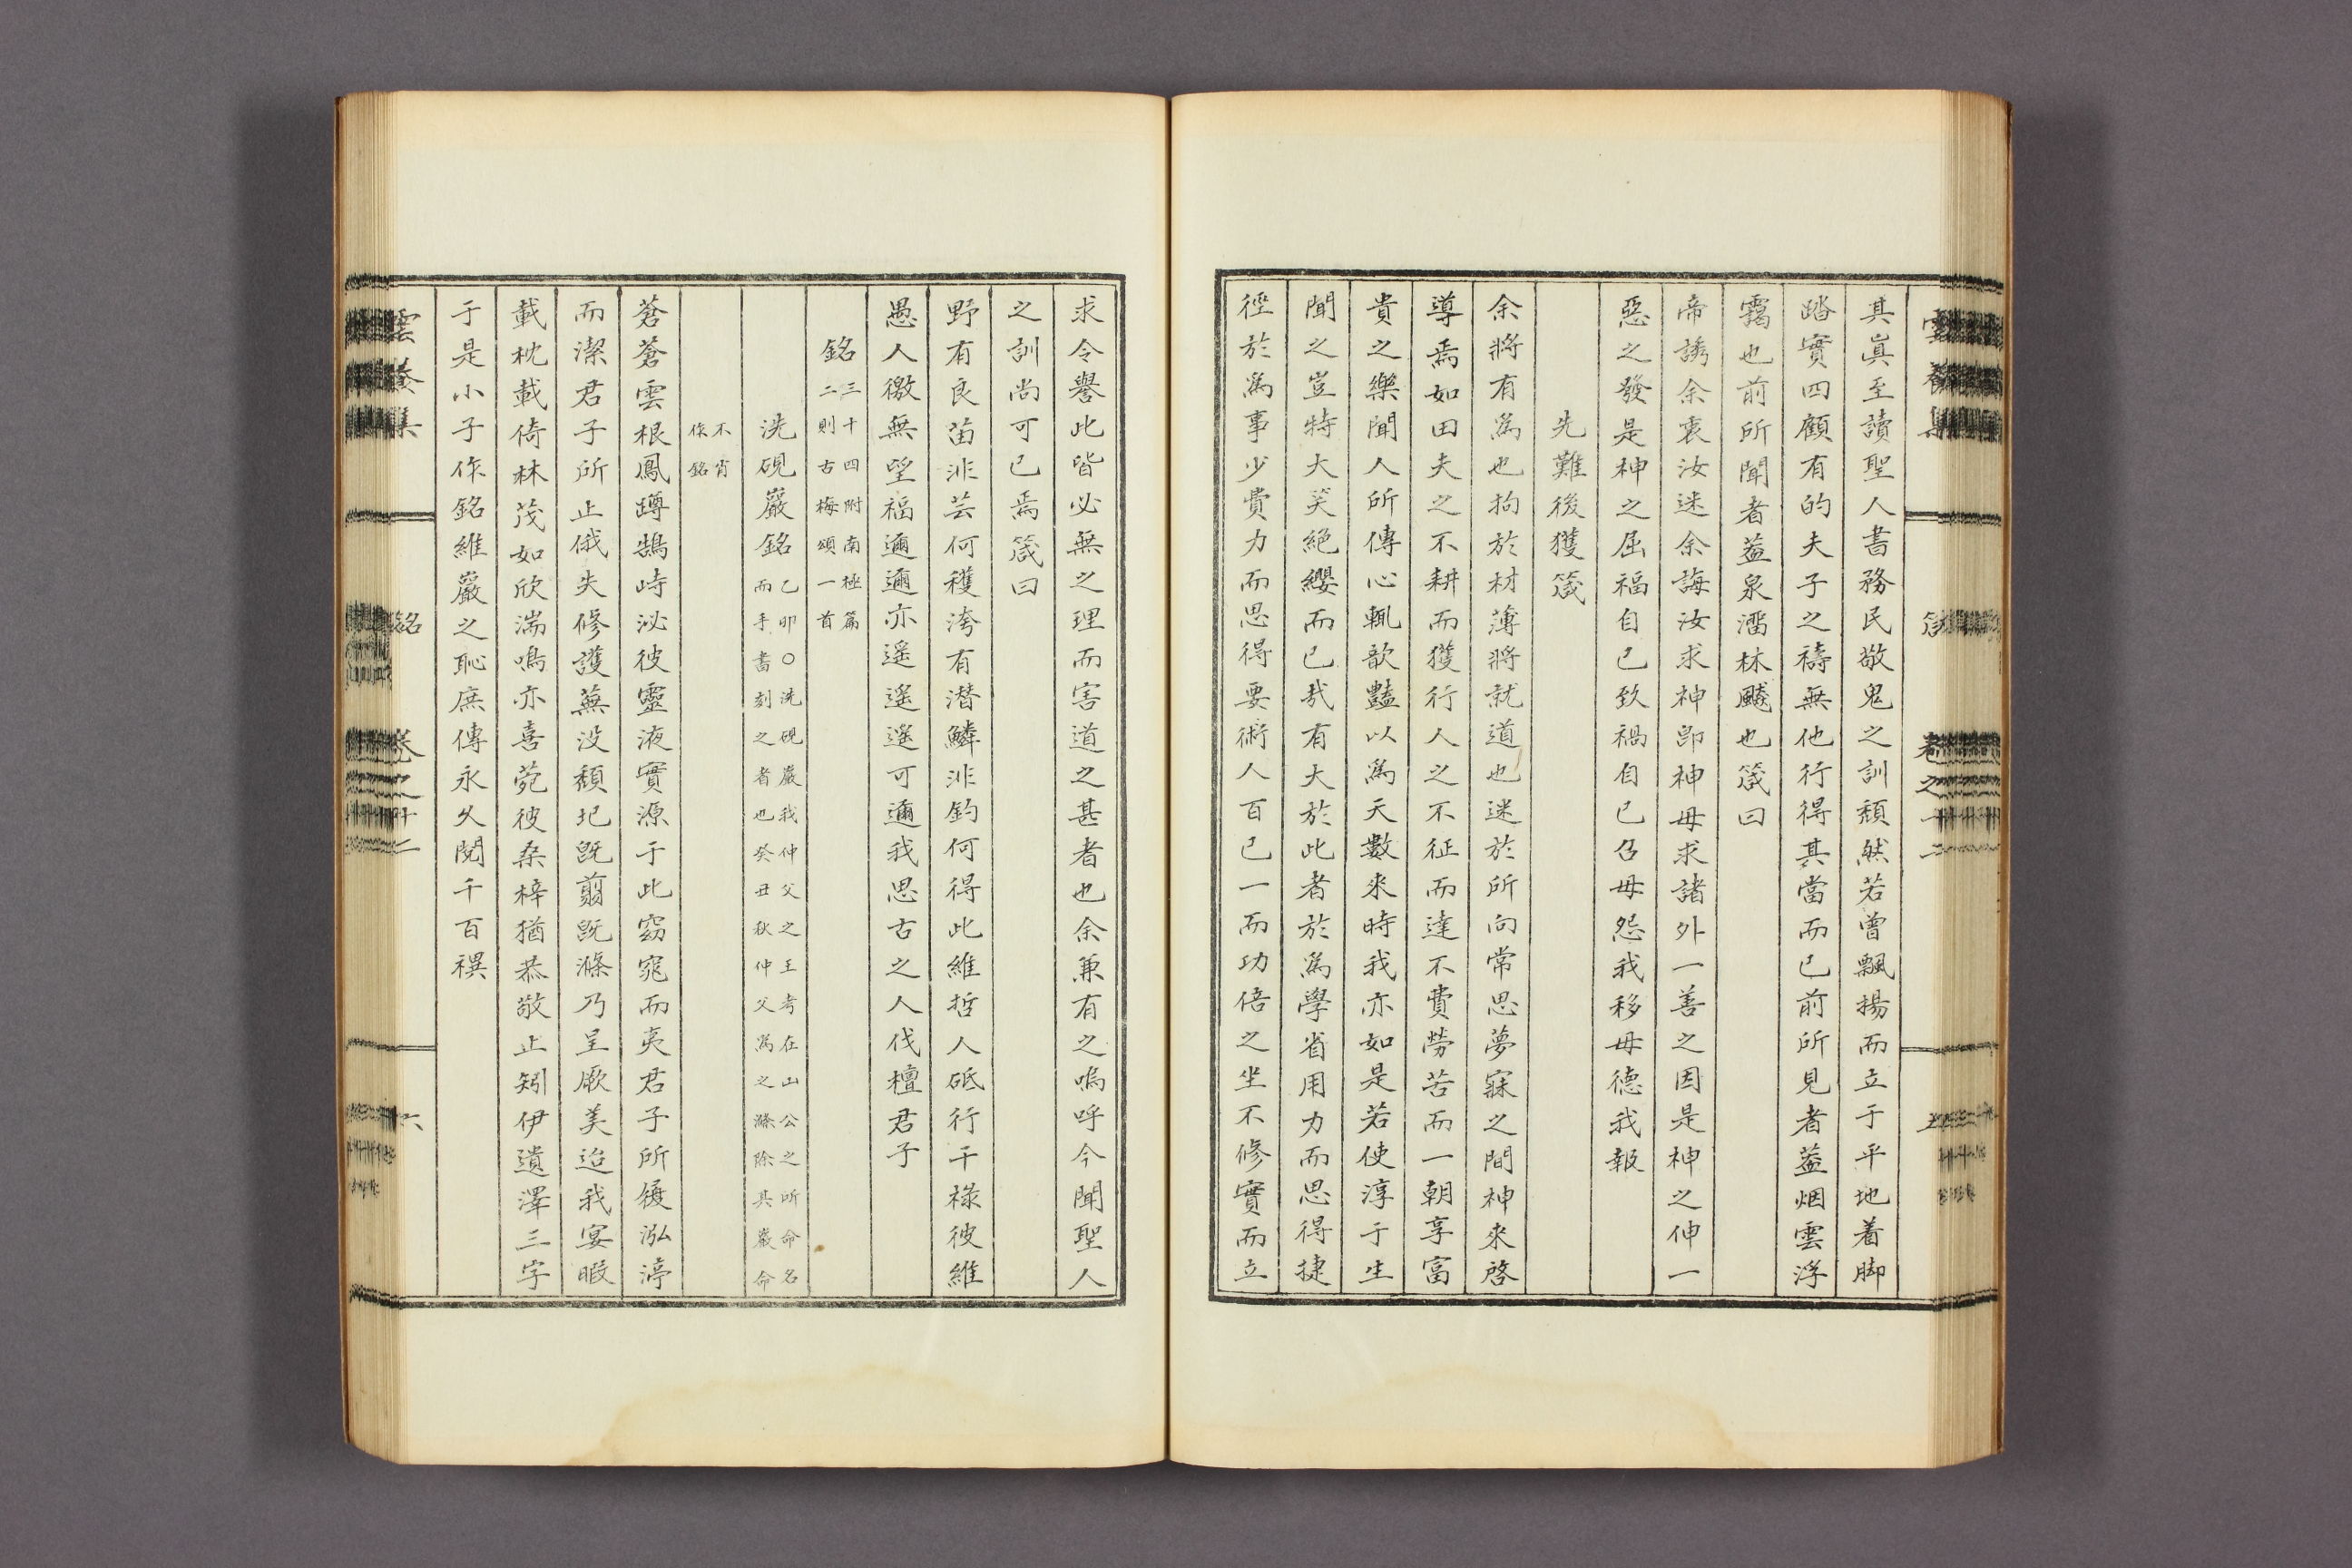 其眞至讀聖人書務民敬鬼之訓頹然若曾飄揚而立于平地着脚
踏實四顧有的夫子之禱無他行得其當而已前所見者葢烟雲浮
靄也前所聞者葢泉澑林飈也箴曰
帝誘余衷汝迷余誨汝求神卽神毋求諸外一善之因是神之伸一
惡之發是神之屈福自已致禍自已召毋怨我移毋德我報
先難後獲箴
余將有爲也拘於材薄將就道也迷於所向常思夢寐之間神來啓
導焉如田夫之不耕而獲行人之不征而達不費勞苦而一朝享富
貴之樂聞人所傳心輒歆豔以爲天數來時我亦如是若使淳于生
聞之豈特大笑絕纓而已哉有大於此者於爲學省用力而思得捷
徑於爲事少費力而思得要術人百已一而功倍之坐不修實而立
求令譽此皆必無之理而害道之甚者也余兼有之嗚呼今聞聖人
之訓尚可已焉箴曰
野有良苗非芸何穫洿有潛鱗非釣何得此維哲人砥行干祿彼維
愚人徼無望福邇邇亦遥遥遥可邇我思古之人伐檀君子
銘 三十四附南極篇
二則古梅頌一首
洗硯巖銘 乙卯○洗硯巖我仲父之王考在山公之所命名
而手書刻之者也癸丑秋仲父爲之滌除其巖命
不肖
作銘
蒼蒼雲根鳳蹲鵠峙泌彼靈液實源于此窈窕而夷君子所履泓渟
而潔君子所止俄失修護蕪没頹圯旣翦旣滌乃呈厥美迨我宴暇
載枕載倚林茂如欣湍鳴亦喜菀彼桑梓猶恭敬止矧伊遺澤三字
于是小子作銘維巖之恥庶傳永久閱千百禩
雲養集
銘
卷之十二
六